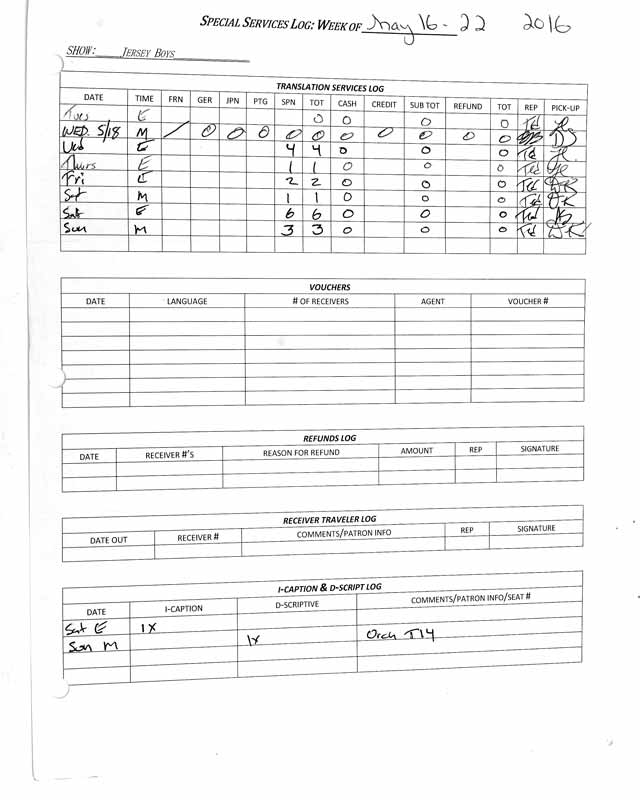 SPECIAL SERVICES LOG: WEEK OF May 16-22 2016
SHOW: JERSEY BOYS
TRANSLATION SERVICES LOG
DATE TIME FRN GER JPN PTG SPN TOT CASH CREDIT SUB TOT REFUND TOT REP PICK-UP
Tues E 0 0 0 0 Td
WED. 5/18 M / 0 0 0 0 0 0 0 0 0 0 DS
Wed E 4 4 0 0 0 Td
Thurs E 1 1 0 0 0 Td
Fri E 2 2 0 0 0 Td DK
Sat M 1 1 0 0 0 Td DK
Sat E 6 6 0 0 0 Td
Sun M 3 3 0 0 0 Td DK
VOUCHERS
DATE LANGUAGE # OF RECEIVERS AGENT VOUCHER #
REFUNDS LOG
DATE RECEIVER #'S REASON FOR REFUND AMOUNT REP SIGNATURE
RECEIVER TRAVELER LOG
DATE OUT RECEIVER # COMMENTS/PATRON INFO REP SIGNATURE
I-CAPTION & D-SCRIPT LOG
DATE I-CAPTION D-SCRIPTIVE COMMENTS/PATRON INFO/SEAT #
Sat E 1X
Sun M 1X Orch T14